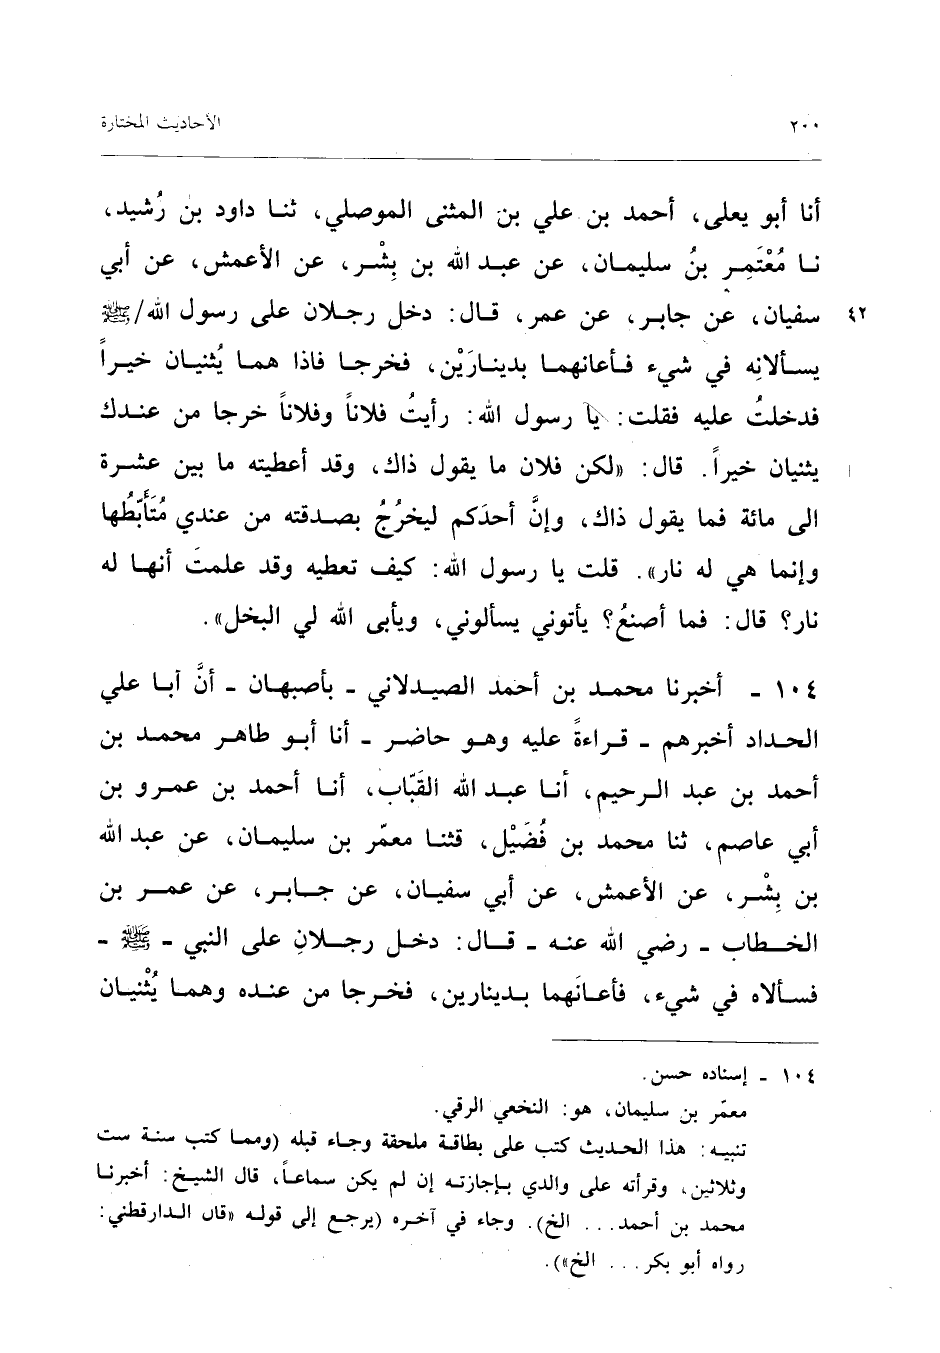 ٢٠٠ الأحاديث المختارة
أنا أبو يعلى، أحمد بن علي بن المثنى الموصلي، ثنا داود بن رُشيد،
نا مُعْتَمِر بنُ سليمان، عن عبد الله بن بِشْر، عن الأعمش، عن أبي
٤٢ سفيان، عن جابر، عن عمر، قال: دخل رجلان على رسول الله/ ﷺ
يسألانِه في شيء فأعانهما بدينارَيْن، فخرجا فاذا هما يُثنيان خيراً
فدخلتُ عليه فقلت: يا رسول الله: رأيتُ فلاناً وفلاناً خرجا من عندك
يثنيان خيراً. قال: «لكن فلان ما يقول ذاك، وقد أعطيته ما بين عشرة
الى مائة فما يقول ذاك، وإنَّ أحدَكم ليخرُجُ بصدقته من عندي مُتَأَبِّطُها
وإنما هي له نار». قلت يا رسول الله: كيف تعطيه وقد علمتَ أنها له
نار؟ قال: فما أصنعُ؟ يأتوني يسألوني، ويأبى الله لي البخل».
١٠٤ - أخبرنا محمد بن أحمد الصيدلاني - بأصبهان - أنَّ أبا علي
الحداد أخبرهم - قراءةً عليه وهو حاضر - أنا أبو طاهر محمد بن
أحمد بن عبد الرحيم، أنا عبد الله القَبَّاب، أنا أحمد بن عمرو بن
أبي عاصم، ثنا محمد بن فُضَيْل، قثنا معمّر بن سليمان، عن عبد الله
بن بِشْر، عن الأعمش، عن أبي سفيان، عن جابر، عن عمر بن
الخطاب - رضي الله عنه - قال: دخل رجلانِ على النبي - ﷺ -
فسألاه في شيء، فأعانَهما بدينارين، فخرجا من عنده وهما يُثْنيان
١٠٤ - إسناده حسن.
معمّر بن سليمان، هو: النخعي الرقي.
تنبيه: هذا الحديث كتب على بطاقة ملحقة وجاء قبله (ومما كتب سنة ست
وثلاثين، وقرأته على والدي بإجازته إن لم يكن سماعاً، قال الشيخ: أخبرنا
محمد بن أحمد... الخ). وجاء في آخره (يرجع إلى قوله «قال الدارقطني:
رواه أبو بكر... الخ»).